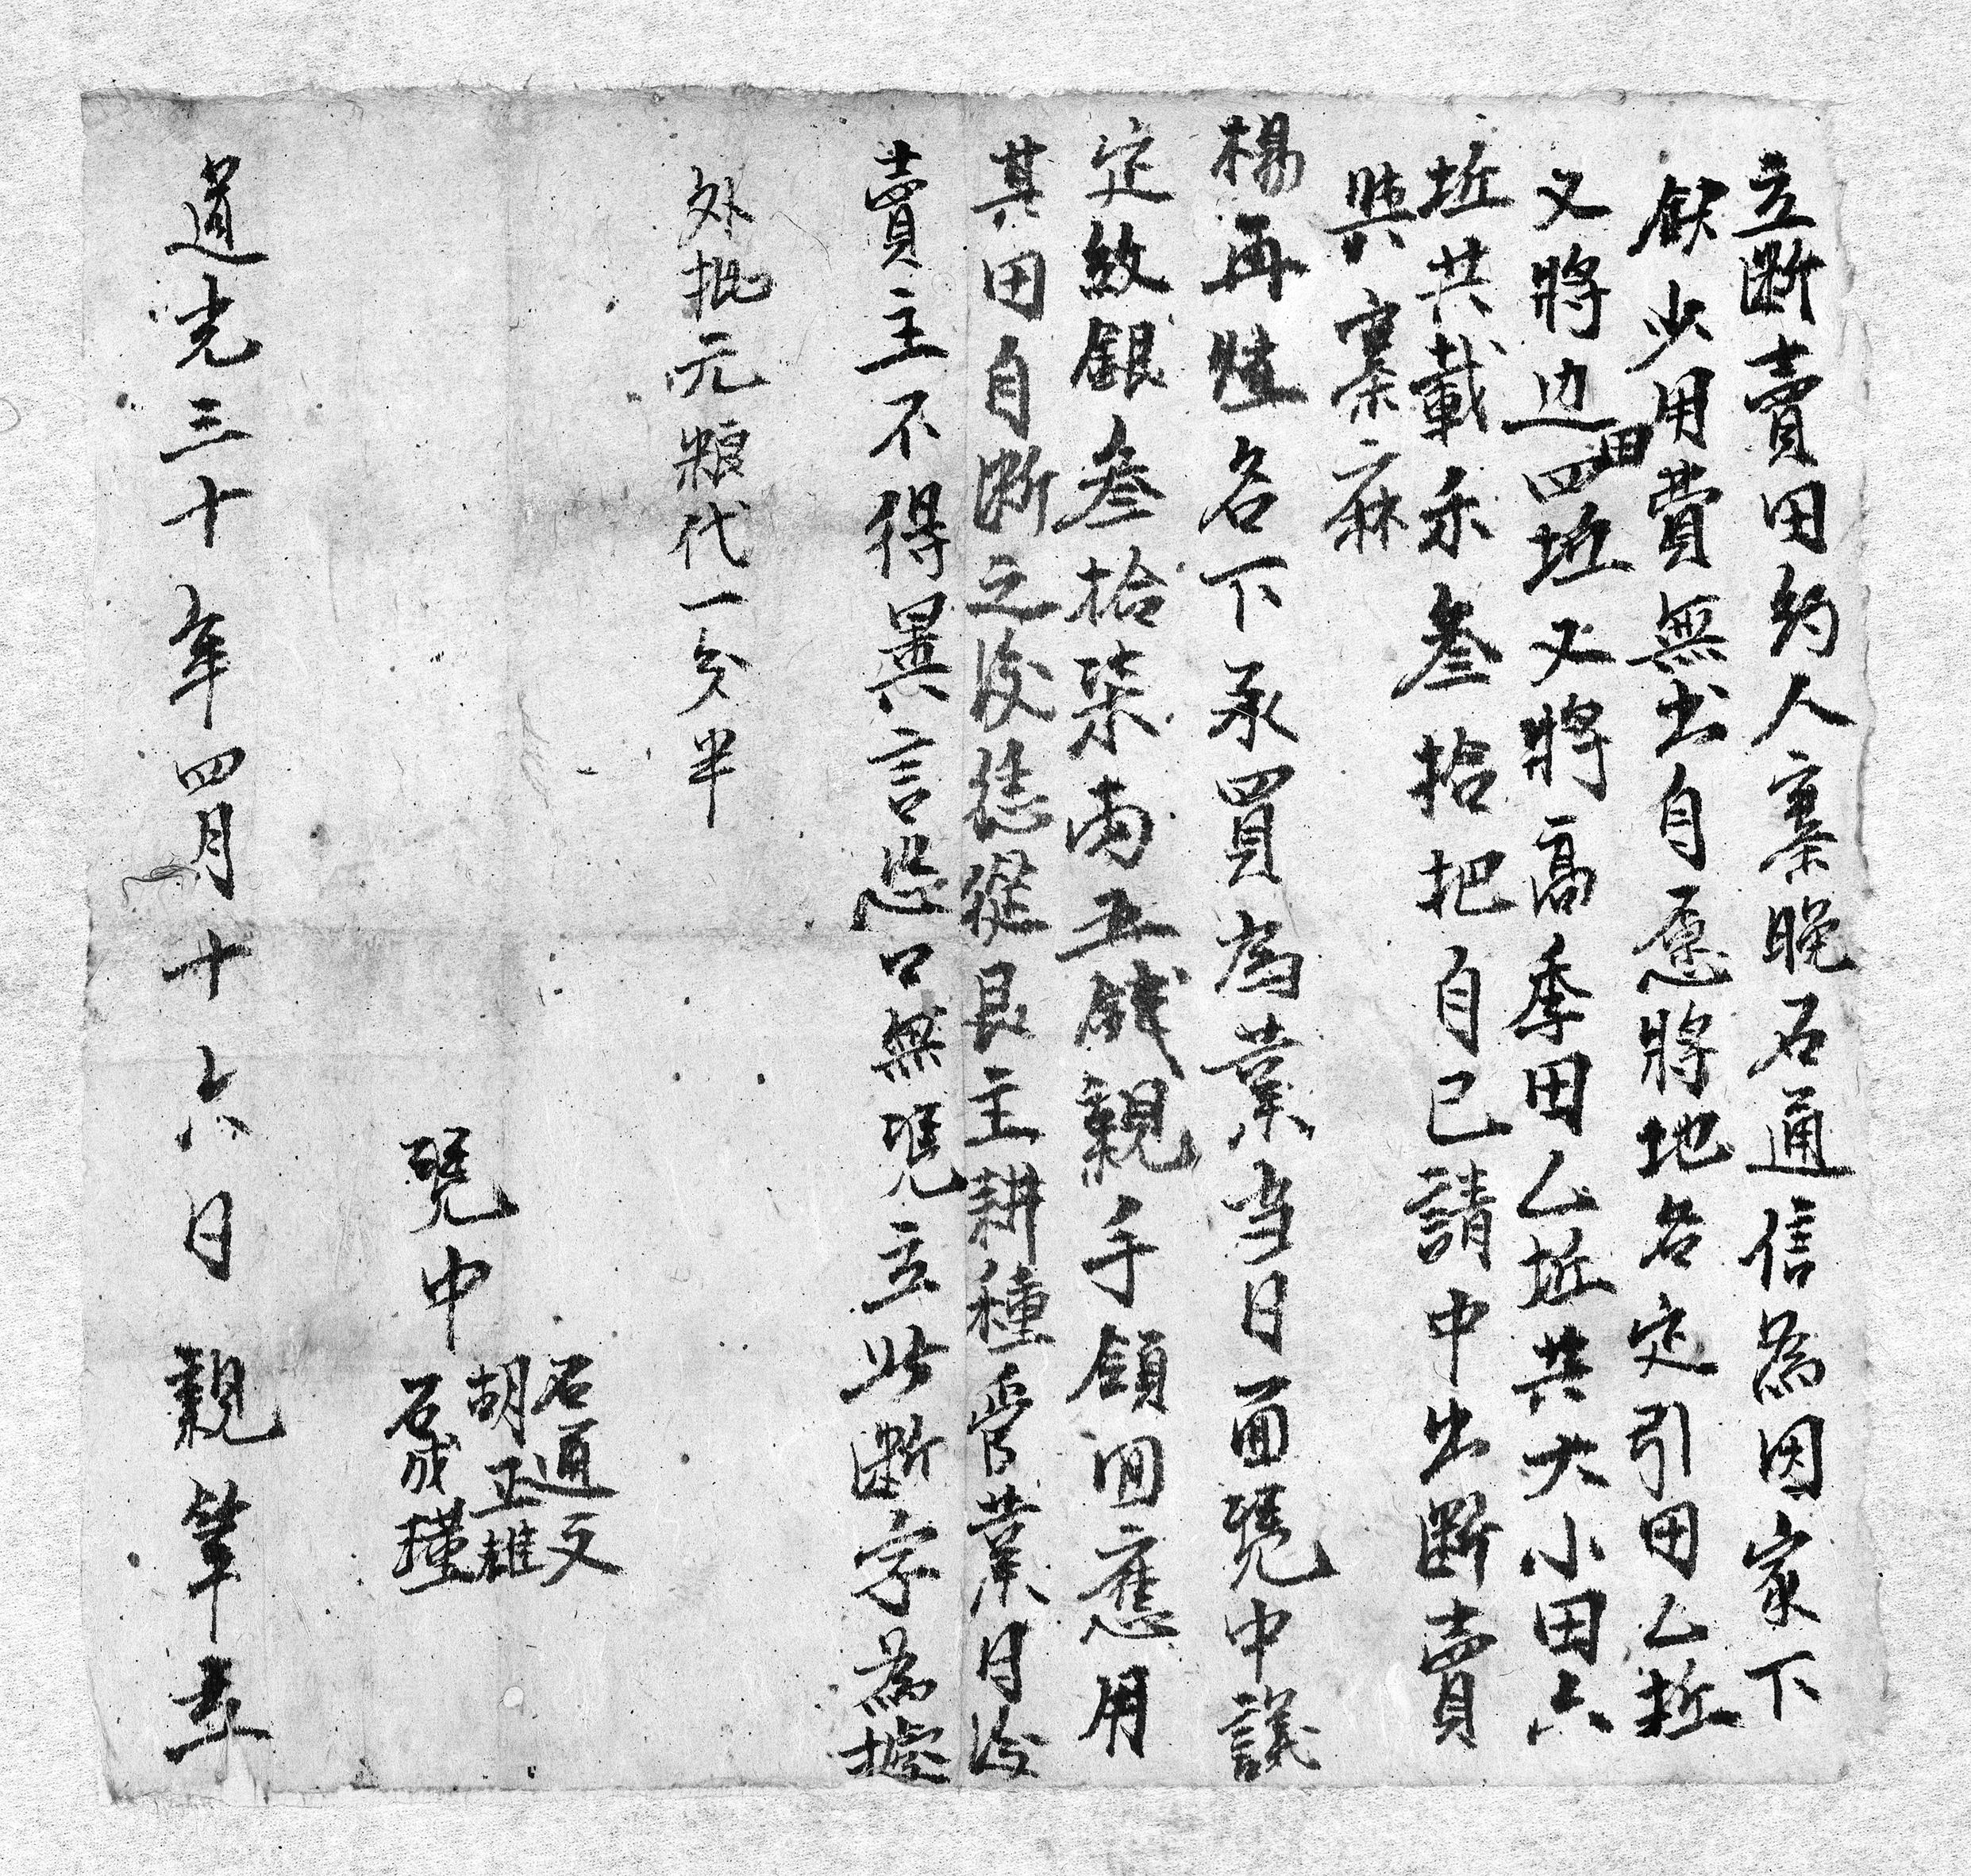 立断賣田約人寨晚石通信為因家下
缺少用費無出自愿將地名定引田乙坵
又將边田四坵又將高季田乙坵共大小田六
坵共載禾叁拾把自己請中出断賣
與寨麻
楊再 名下承買為業当日面凴中議
定紋銀叁拾柒両五錢親手領回應用
其田自断之後恁從買主耕種管業日後
賣主不得異言恐口無凴立此断字為據
外批元粮代一分半
凴中
石通文
胡正雄
石成瑾
道光三十年四月十六日親筆立